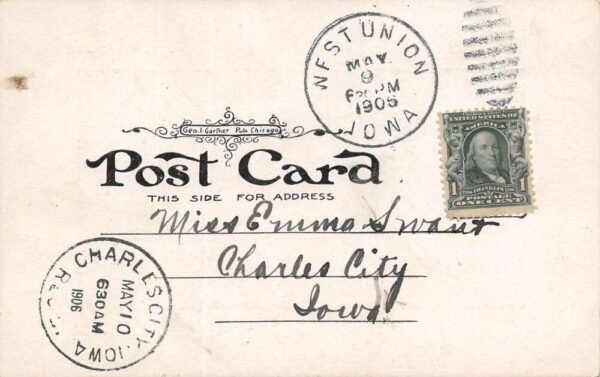 WEST UNION
MAY
9
6 PM
1906
IOWA
Geo. J. Garther Pub. Chicago
Post Card
THIS SIDE FOR ADDRESS
UNITED STATES OF
AMERICA
1 FRANKLIN 1
POSTAGE
ONE CENT
Miss Emma Swant
Charles City
Iowa
CHARLES CITY, IOWA
MAY 10
630 AM
1906
REC'D